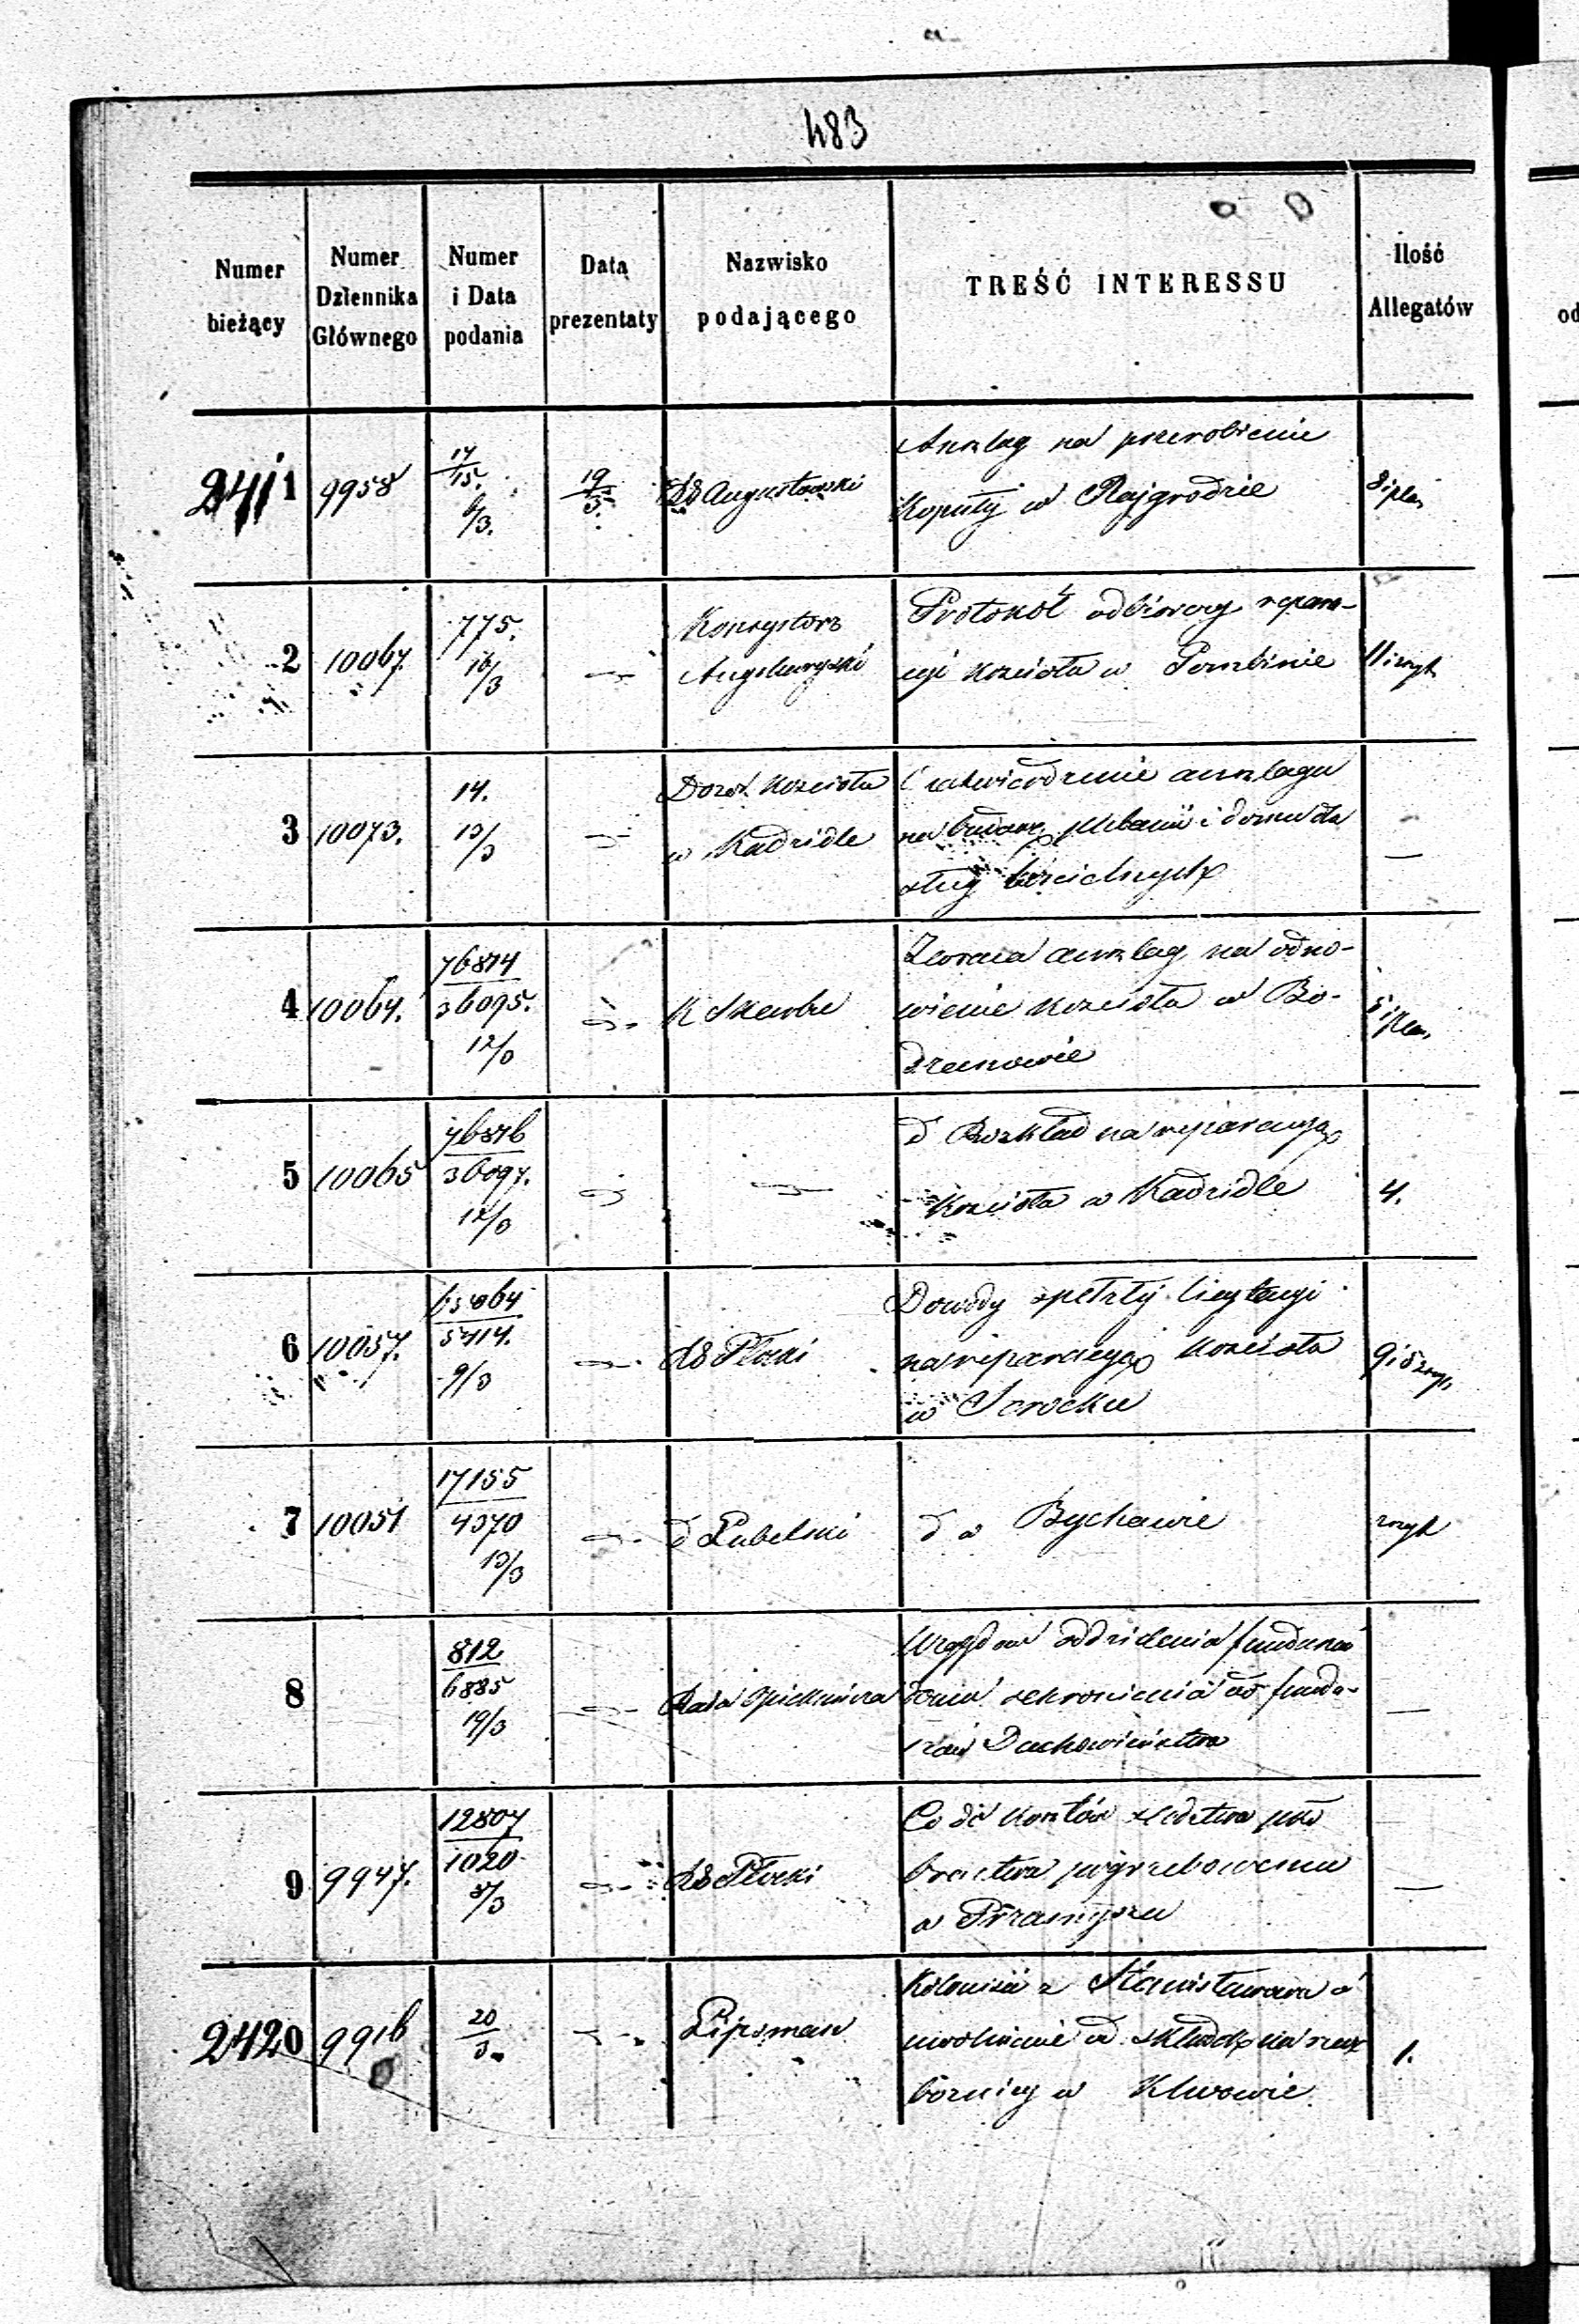 483
Numer bieżący
Numer Dziennika Głównego
Numer i Data podania
Data prezentaty
Nazwisko podającego
TREŚĆ INTERESSU
Ilość Allegatów
od
2411 9958 17/15. 6/3. 19/3. Augustowski
Anszlag na przerobienie
Kopuły w Rajgrodzie
2 10067. 775. 16/3
Konsystorz
Augsburgski
Protokół odbiorczy repara-
cyi Kościoła w
3 10073. 14. 13/3
Dozór Kościoła
w Kadzidle
Zatwierdzenie anszlagu
na budowę plebanii i domu dla
sług kościelnych
4 10064. 76874/36095. 12/3
K Skarbu
Zwraca anszlag na odno-
wienie Kościoła w Bo-
drzanowie
5 10065 76876/36097. 12/3
d Rozkład na reparacyą
Kościoła w Kadzidle
4.
6 10057. 5414. 9/3
Płocki
Dowody spełzłej licytacyi
na reparacyą Kościoła
w Serocku
7 10051 17155/4370 13/3
d Lubelski
d w Bychawie
8 812/6885 19/3
Rada Opiekuńcza
Względem oddzielenia
schronienia od fundu-
szów Duchowieństwa
9 9947. 12807/1020 8/3
Płocki
Co do Kosztów
bractwa pogrzebowemu
w Przasnyszu
2420 9916 20/3.
Lipsman
z Stanisławowa o
uwolnienie od składki na rzecz
bóżnicy w Klwowie
1.